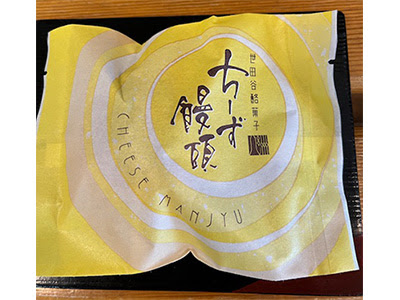 世田谷酪菓子
ちーず
饅頭
CHEESE MANJYU